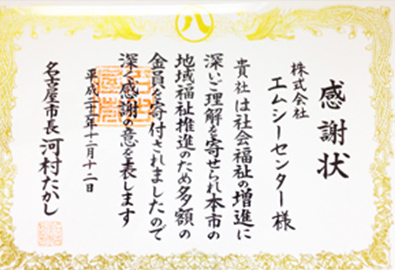 八
感謝状
株式会社
エムシーセンター様
貴社は社会福祉の増進に
深いご理解を寄せられ本市の
地域福祉推進のため多額の
金員を寄付されましたので
深く感謝の意を表します
平成二十三年十二月十二日
名古屋市長 河村たかし